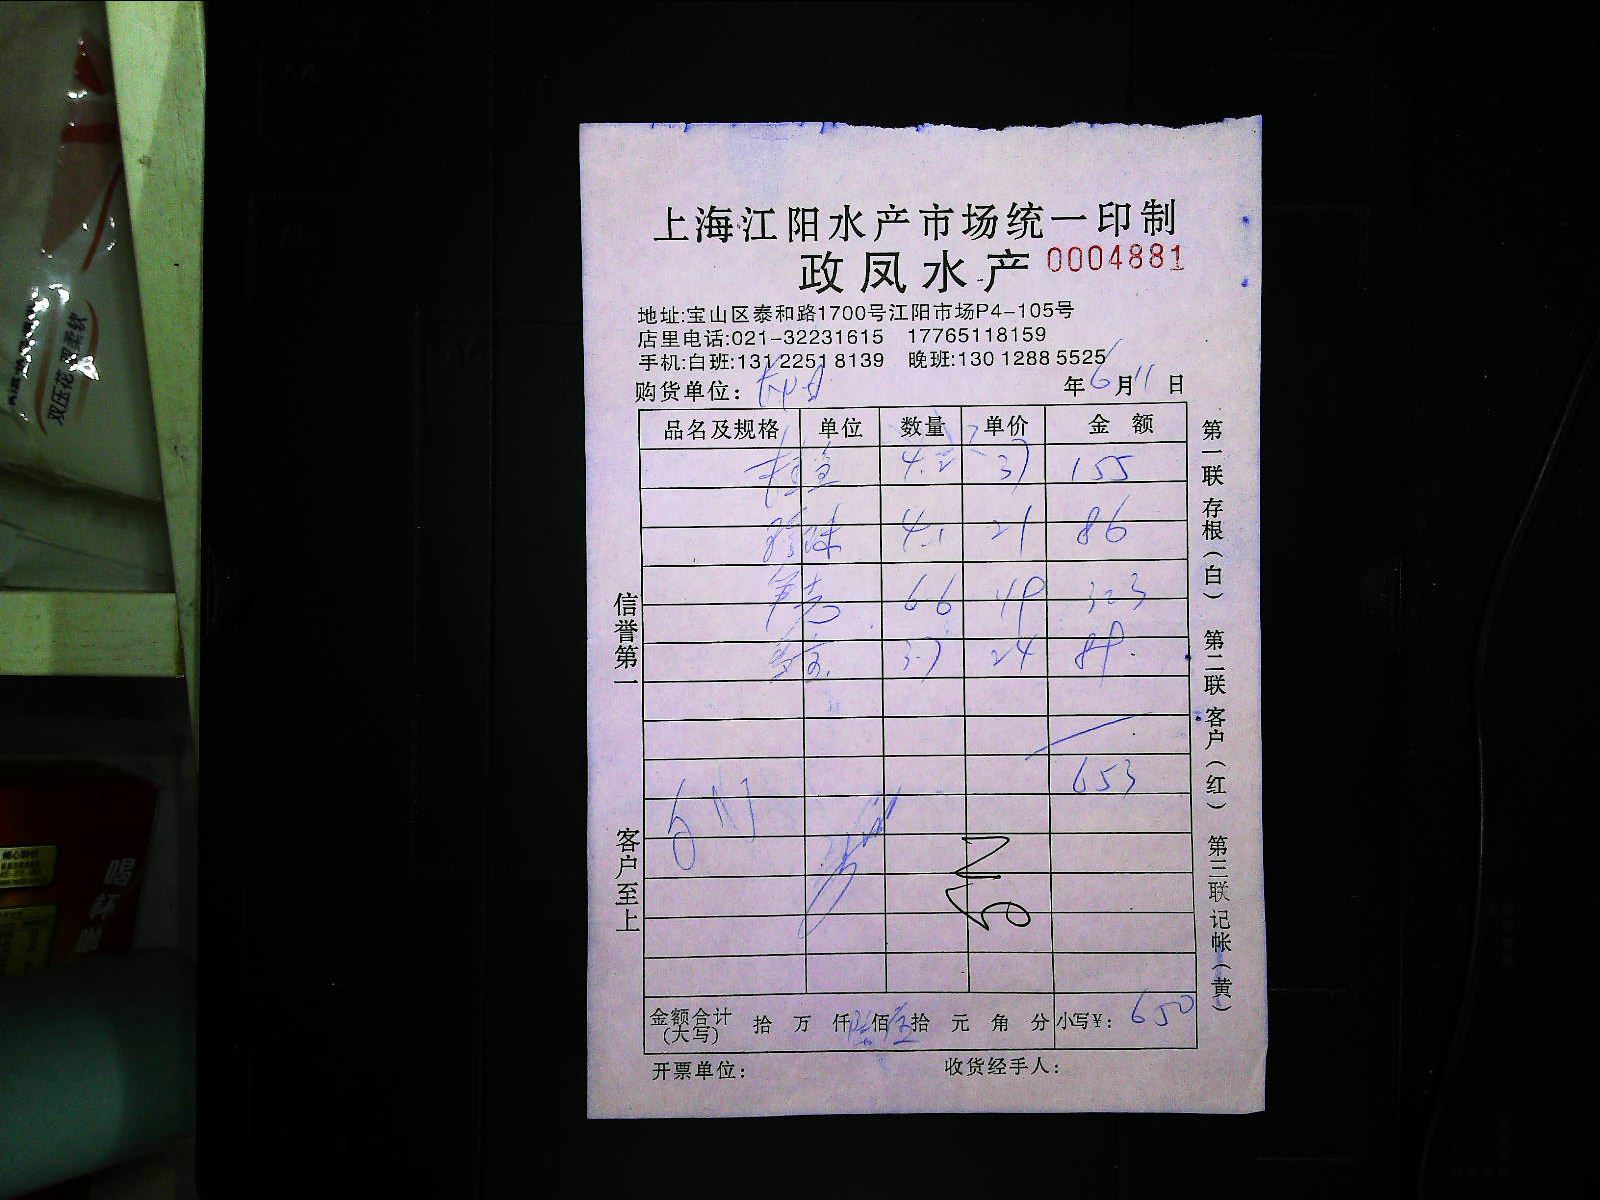 上海江阳水产市场统一印制
政凤水产 0004881
地址:宝山区泰和路1700号江阳市场P4-105号
店里电话:021-32231615 17765118159
手机:白班:131 2251 8139 晚班:130 1288 5525
购货单位: 年6月11日
品名及规格 单位 数量 单价 金额
桂鱼 4.2 37 155
珍珠 4.1 21 86
6.6 49 323
3.7 24 89.
653
金额合计(大写) 拾 万 仟陆佰伍拾 元 角 分 小写¥: 650
开票单位: 收货经手人:
信誉第一
客户至上
第一联存根(白) 第二联客户(红) 第三联记帐(黄)
双压花 双柔软
喝杯